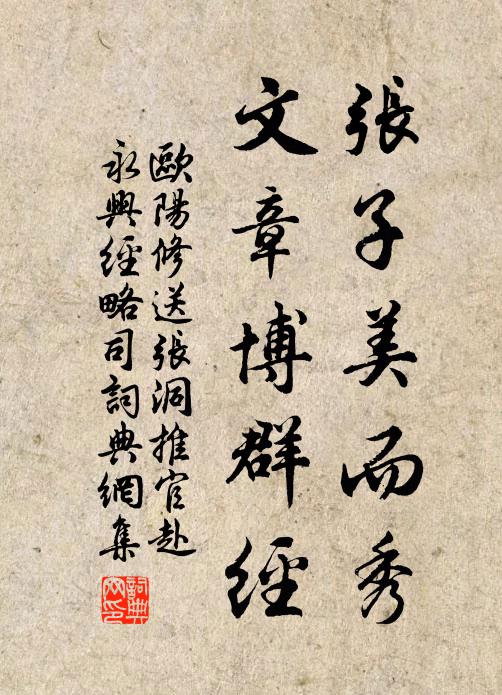 張子美而秀
文章博群經
歐陽修送張洞推官赴
永興經略司詞典網集
詞典网印